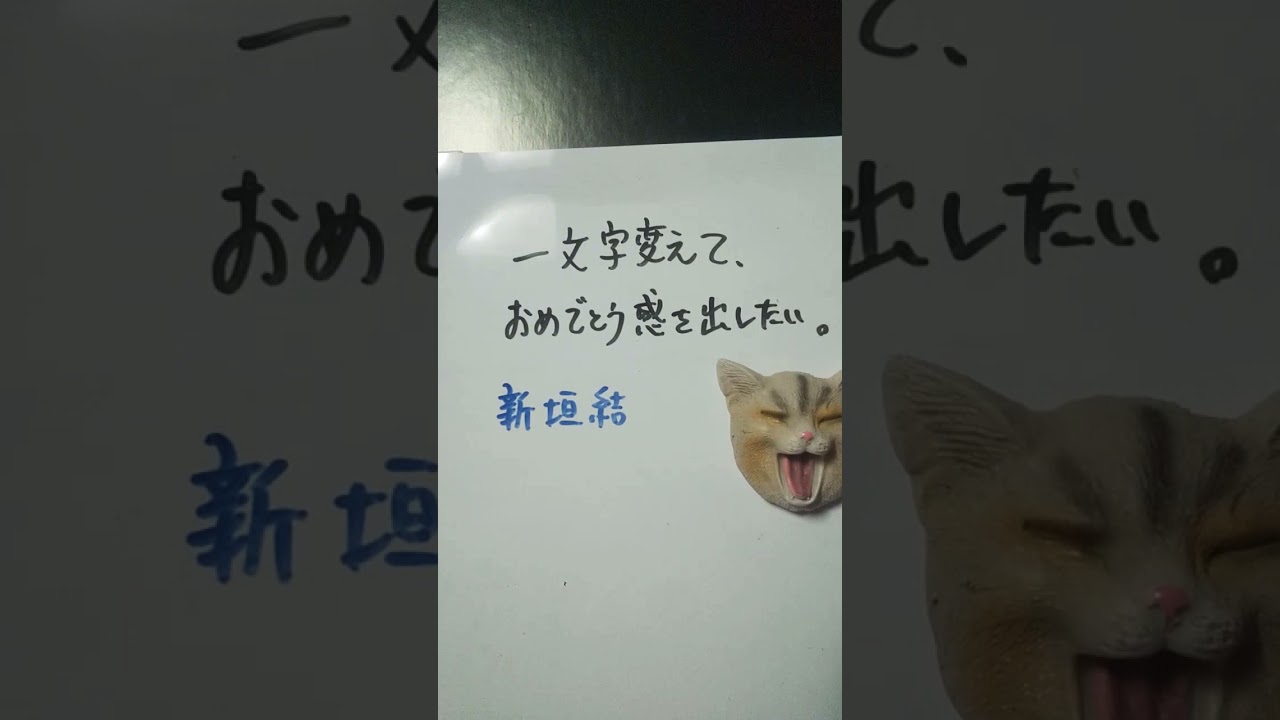 一文字変えて、
おめでとう感を出したい。
新垣結